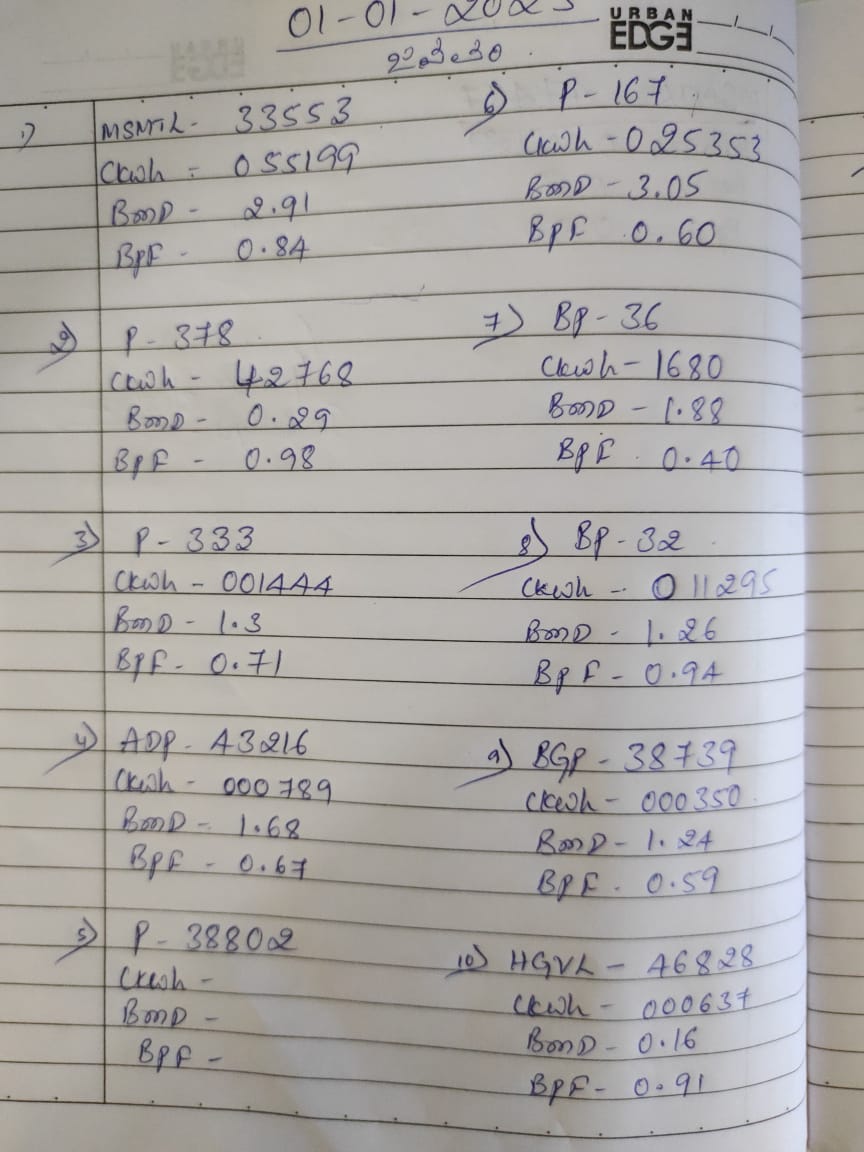 01-01-2023
URBAN
EDGE
1) MSMTL - 33553
Ckwh - 055199
BmD - 2.91
BPF - 0.84
2) P - 378
Ckwh - 42768
BmD - 0.29
BPF - 0.98
3) P - 333
Ckwh - 001444
BmD - 1.3
BPF - 0.71
4) ADP - 43216
Ckwh - 000789
BmD - 1.68
BPF - 0.67
5) P - 38802
Ckwh -
BmD -
BPF -
6) P - 167
Ckwh - 025353
BmD - 3.05
BPF 0.60
7) BP - 36
Ckwh - 1680
BmD - 1.88
BPF . 0.40
8) BP - 32
Ckwh - 011295
BmD - 1.26
BPF - 0.94
9) BGP - 38739
Ckwh - 000350
BmD - 1.24
BPF - 0.59
10) HGVL - 46828
Ckwh - 000637
BmD - 0.16
BPF - 0.91